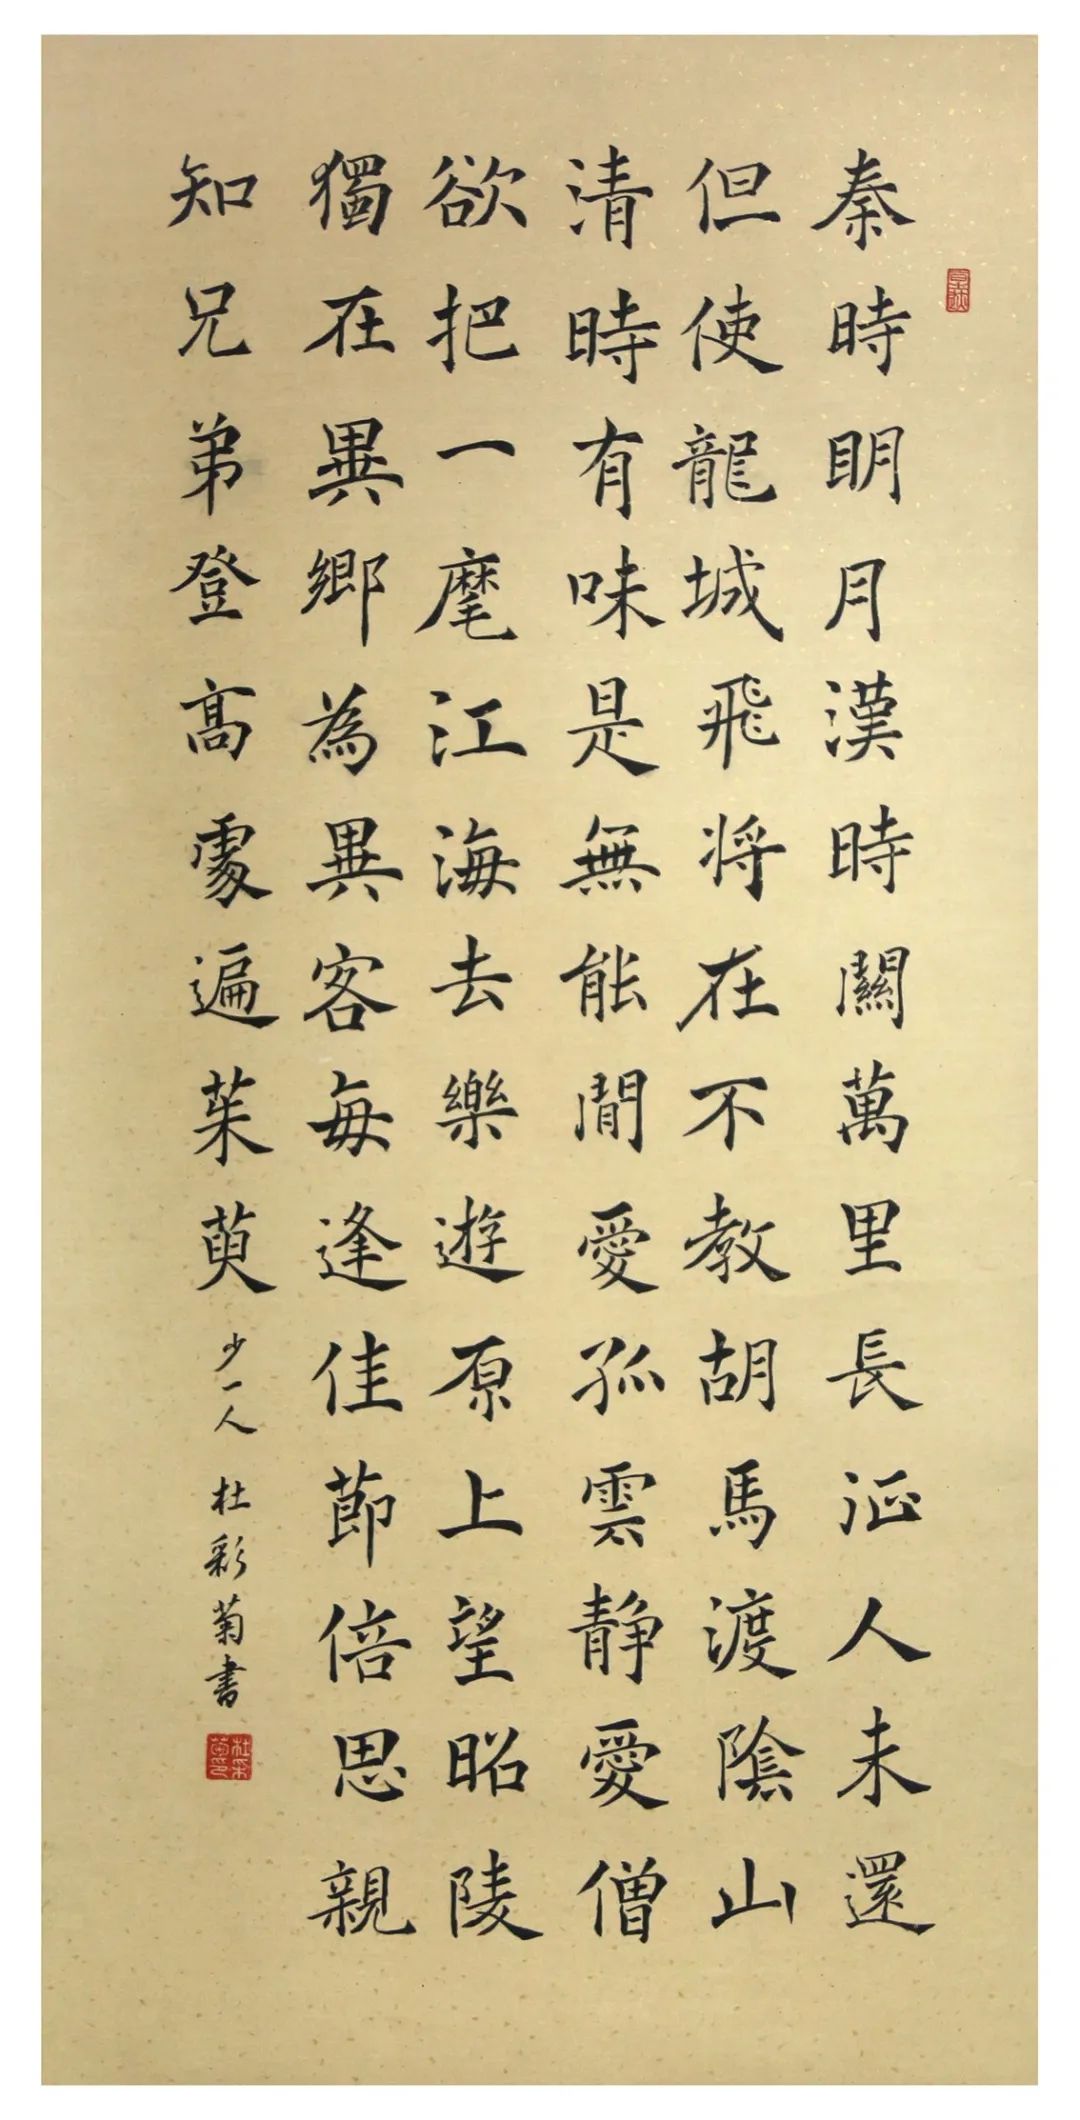 秦時明月漢時關萬里長征人未還
但使龍城飛将在不教胡馬渡陰山
清時有味是無能閒愛孤雲静愛僧
欲把一麾江海去樂遊原上望昭陵
獨在異鄉為異客每逢佳節倍思親
知兄弟登高處遍茱萸少一人杜彩菊書